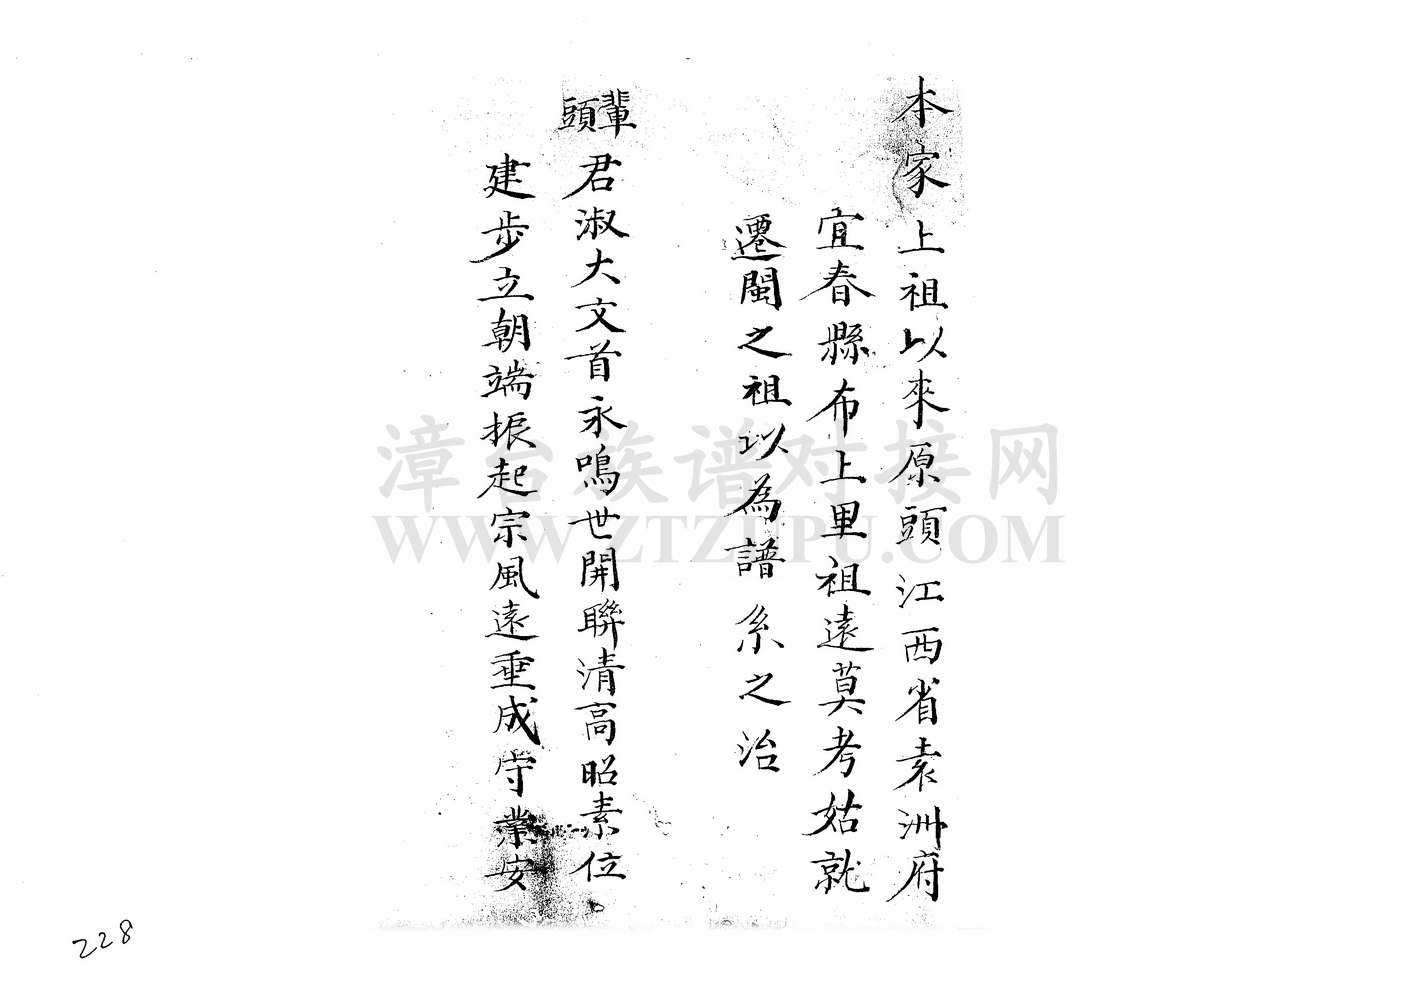 本家上祖以來原頭江西省袁洲府
宜春縣布上里祖遠莫考姑就
遷閩之祖以為譜系之治
輩頭
君淑大文首永鳴世開聯清高昭素位
建步立朝端振起宗風遠垂成守業安
漳台族谱对接网
WWW.ZTZUPU.COM
228